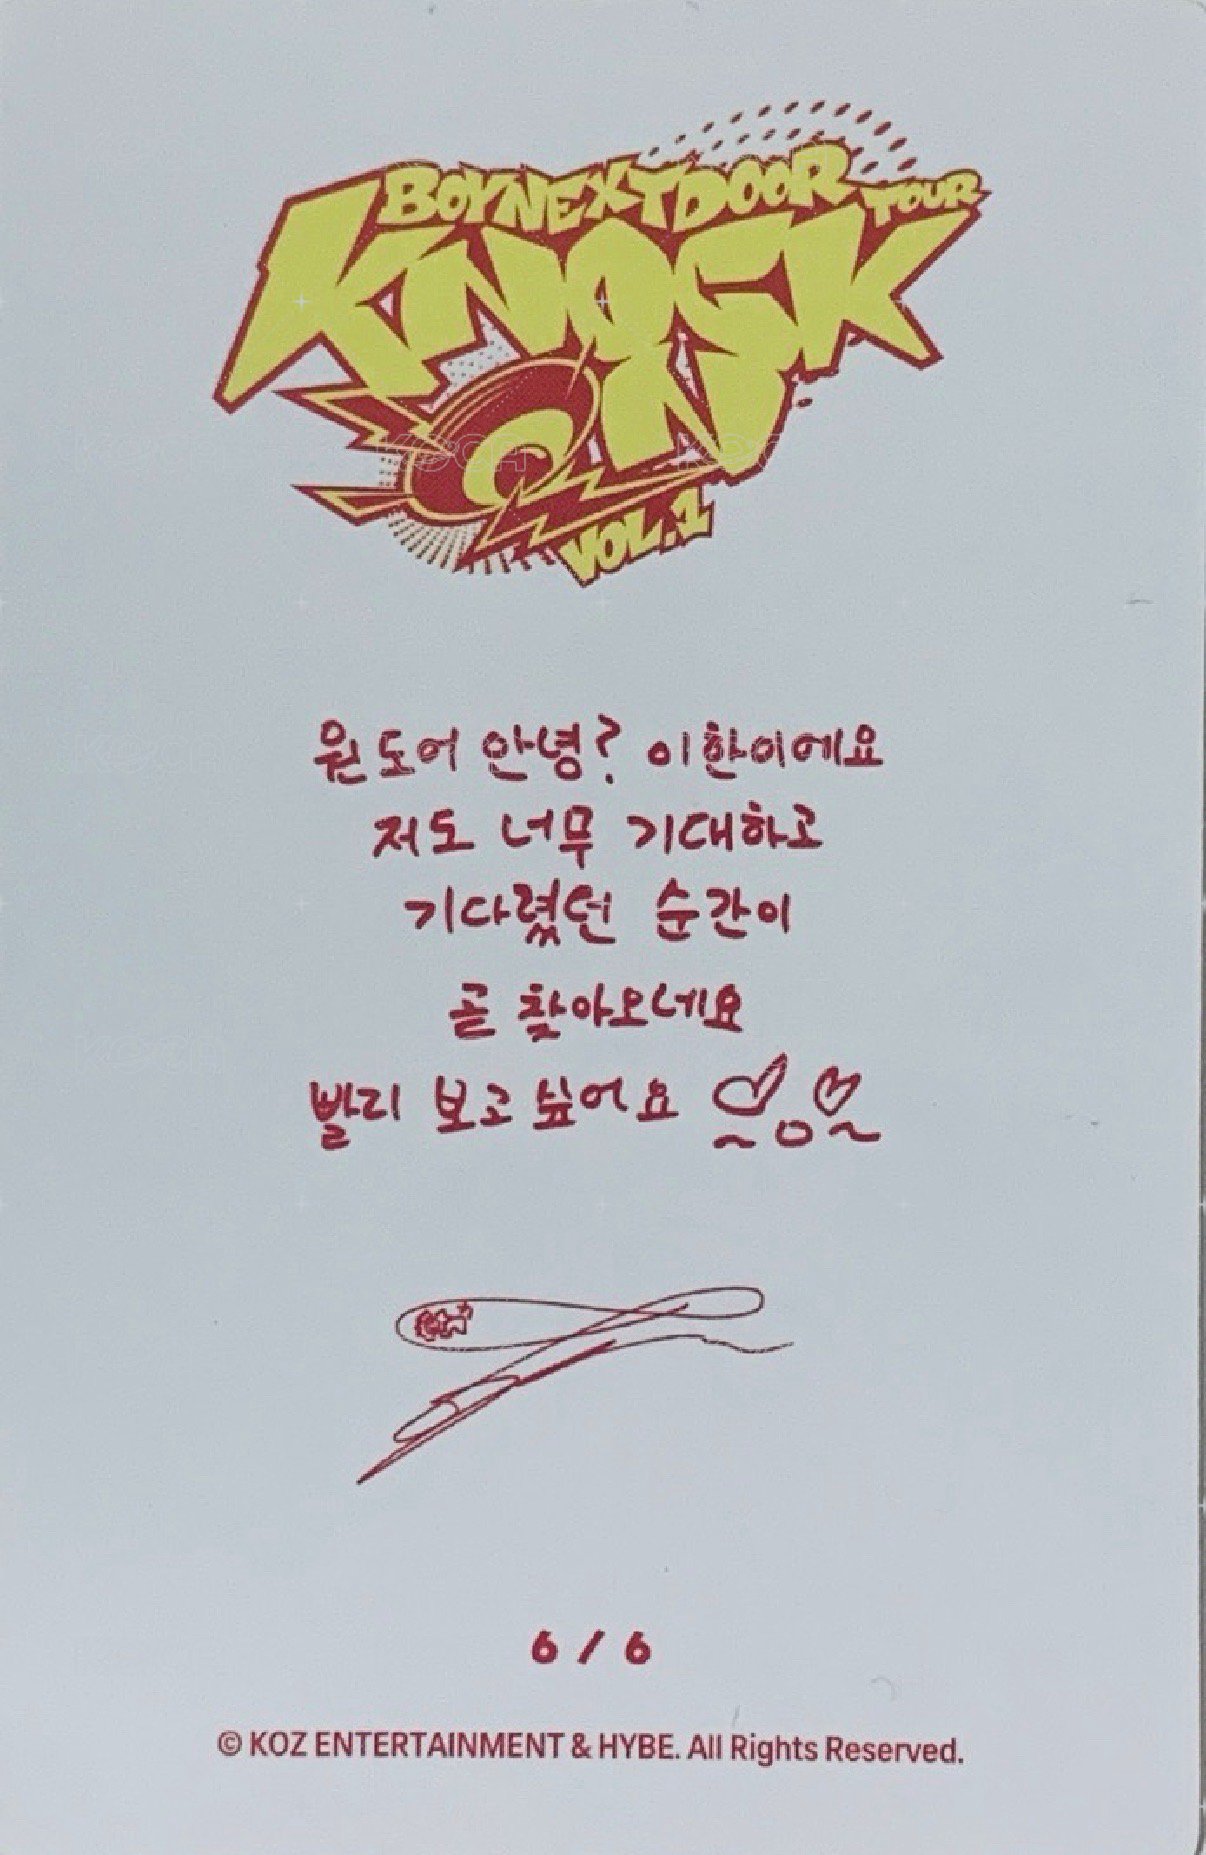 BOYNEXTDOOR TOUR
KNOCK
ON
VOL.1
원도어 안녕? 이한이에요
저도 너무 기대하고
기다렸던 순간이
곧 찾아오네요
빨리 보고 싶어요
6/6
© KOZ ENTERTAINMENT & HYBE. All Rights Reserved.